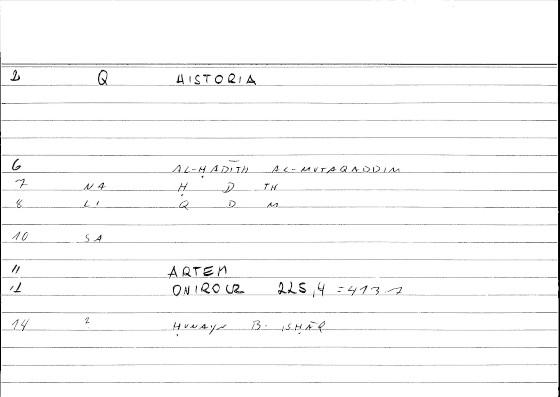 1 Q HISTORIA
6 AL-ḤADĪTH AL-MUTAQADDIM
7 NA Ḥ D TH
8 LI Q D M
10 SA
11 ARTEM
12 ONIROCR 225,4 =413
14 ? ḤUNAYN B. ISḤĀQ